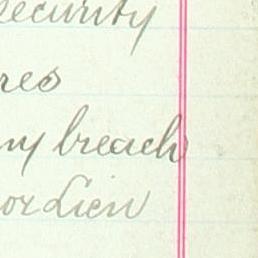 security
res
ny breach
or Lien